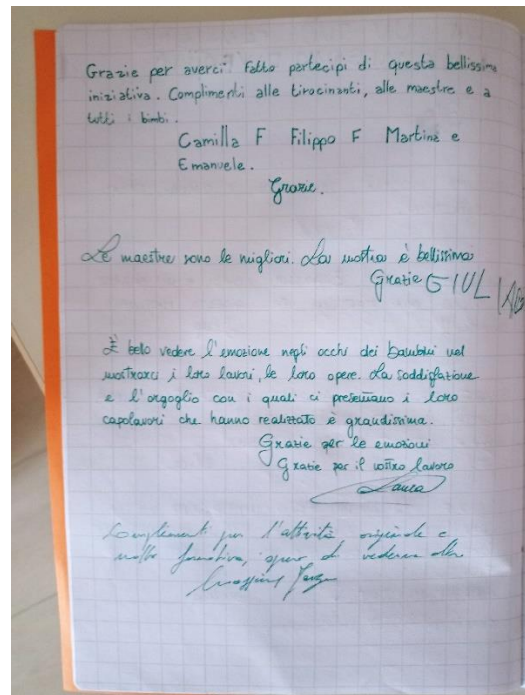 Grazie per averci fatto partecipi di questa bellissima
iniziativa. Complimenti alle tirocinanti, alle maestre e a
tutti i bimbi.
Camilla F Filippo F Martina e
Emanuele.
Grazie.
Le maestre sono le migliori. La mostra è bellissima
Grazie GIULIA
È bello vedere l'emozione negli occhi dei bambini nel
mostrarci i loro lavori, le loro opere. La soddisfazione
e l'orgoglio con i quali ci presentano i loro
capolavori che hanno realizzato è grandissima.
Grazie per le emozioni
Grazie per il vostro lavoro
Laura
Complimenti per l'attività, originale e
molto formativa, spero di vederne altre